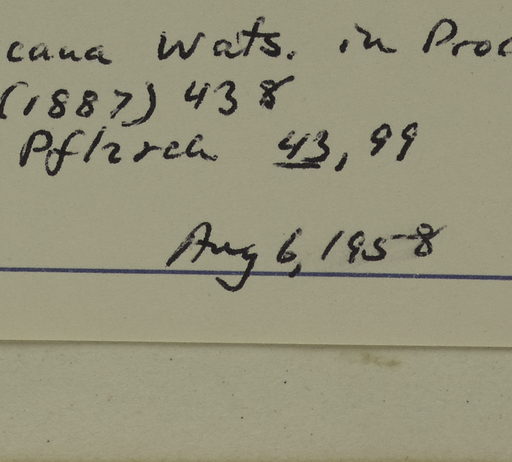 cana Wats. in Proc
(1887) 438
Pflzrch 43, 99
Aug 6, 1958